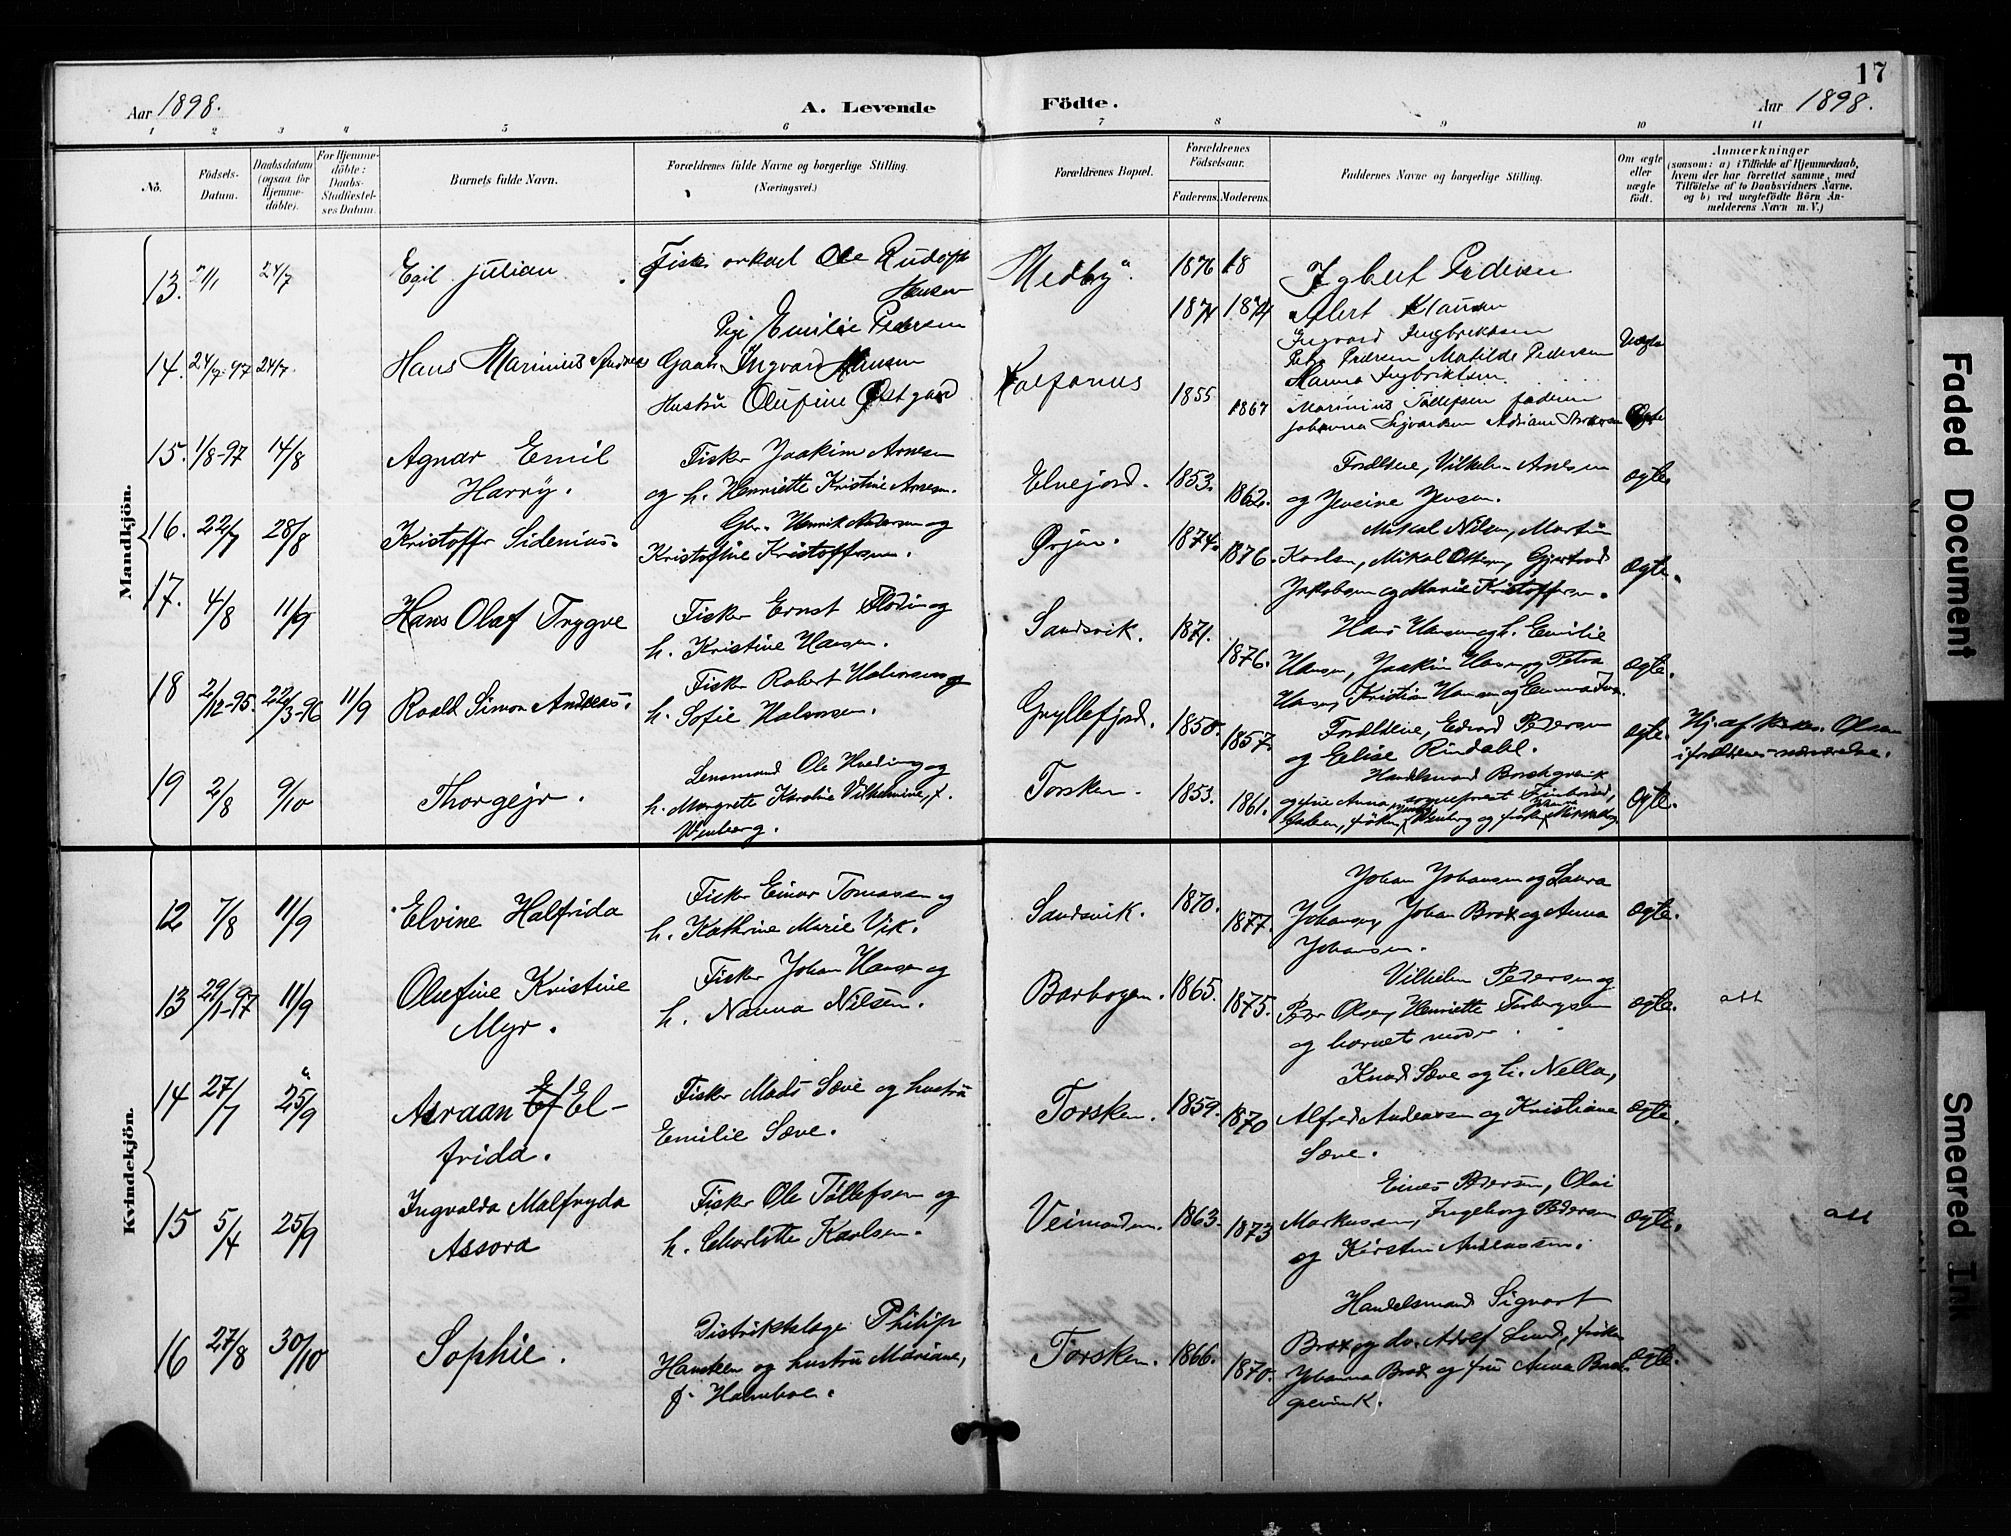 17
Aar 1898. A. Levende Födte. Aar 1898.
1 2 3 4 5 6 7 8 9 10 11
No. Födsels-Datum. Daabsdatum (ogsaa for Hjemmedöbte). For Hjemmedöbte: Daabs-Stadfæstelses Datum. Barnets fulde Navn. Forældrenes fulde Navne og borgerlige Stilling. (Næringsvei.) Forældrenes Bopæl. Forældrenes Födselsaar. Faderens. Moderens. Faddernes Navne og borgerlige Stilling. Om ægte eller uægte födt. Anmærkninger (saasom: a) i Tilfælde af Hjemmedaab, hvem der har forrettet samme, med Tilföielse af to Daabsvidners Navne, og b) ved uægtefödte Börn Anmelderens Navn m. V.)
Mandkjön.
13. 24/7 Egil Julian Fisk Ole Rudolf Hansen Medby. 1876 18 Pedersen
Pige Emilie Pedersen 1874 1874 Albert Klausen
Ingvard Ingbriktsen
14. 24/7-97 24/7. Hans Marinius Gaab. Ingvard Hansen Pedersen Matilde Pedersen Uægte
Hustru Olufine Østgaard Kalfarnes 1855 1867 Hanna Ingbriktsen
Marinius Tollefsen
Johanna Sigvardsen
15. 1/8-97 14/8 Agnar Emil Harry. Fisker Joakim Arnesen og h. Henriette Kristine Arnesen. Elvejord. 1853. 1862. Forældrene, Vilhelm Arnesen og Jensine Jensen. ægte.
16. 22/7 28/8 Kristoffer Sidenius. Gbr. Henrik Andersen og Kristofine Kristoffersen. Ørjan. 1874. 1876. Mikal Nilsen, Martin Karlsen, Mikal Ottesen, Gjertrud Jakobsen og Marie Kristoffersen. ægte.
17. 4/8 11/9 Hans Olaf Trygve Fisker Ernst Flodin og h. Kristine Hansen. Sandsvik. 1871. 1876. Hans Hansen og h. Emilie Hansen, Joakim Hansen og Petra Hansen, Kristian Hansen og Emma ægte.
18 2/12-95. 22/3-96 11/9 Roald Simon Andreas. Fisker Robert Halvorsen og h. Sofie Halvorsen. Gryllefjord. 1850. 1857. Forældrene, Edvard Pedersen og Elise Rindahl. ægte. Hj. af Olsen i forældrenes nærværelse.
19 2/8 9/10 Thorgejr. Lensmand Ole Hveding og h. Margrete Karoline Vilhelmine, f. Wenberg. Torsken. 1853. 1861. Handelsmand Borchgrevink og frue Anna, sogneprest ægte.
Kvindekjön.
12 7/8 11/9 Elvine Halfrida Fisker Einar Tomassen og h. Kathrine Marie Vik. Sandsvik. 1870. 1877. Johan Johansen og Laura Johansen, Johan Brox og Anna Johansen. ægte.
13 29/1-97 11/9 Olufine Kristine Myr. Fisker Johan Hansen og h. Nanna Nilsen. Barbogen. 1865. 1875. Vilhelm Pedersen og Peder Olsen, Henriette Torbergsen og barnets moder. ægte. att
14 27/7 25/9 Asraan Elfrida. Fisker Mads Sæve og hustru Emilie Sæve. Torsken. 1859. 1870 Knud Sæve og h. Nella, Alfred Andreassen og Kristiane Sæve. ægte.
15 5/4 25/9 Ingvalda Malfryda Assora Fisker Ole Tollefsen og h. Charlotte Karlsen. Veimanden. 1863. 1873 Eines Pedersen, Olai Markussen, Ingeborg Pedersen og Kirsten Andreassen. ægte. att
16 27/8 30/10 Sophie. Distriktslæge Philip Hansteen og hustru Mariane, f. Holmboe. Torsken. 1866. 1870. Handelsmand Sigvart Brox og do. Adolf Lund, frøken Johanna Brox og frue Anna Borchgrevink. ægte.
Faded Document
Smeared Ink